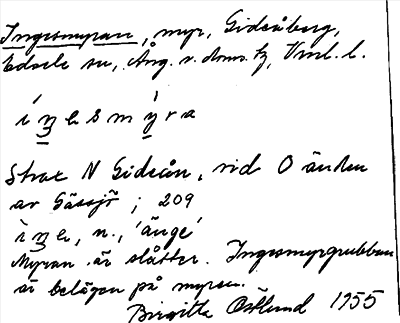 Ingesmyran, myr, Gideåberg,
Edsele sn, Ång. v. doms. tg, Vnrl. l.
ı́ŋesmy̌ra
Strax N Gideån, vid O änden
av Gässjö; 209
ìŋe, n., 'änge'
Myran är slåtter. Ingesmyrgrubban
är belägen på myren.
Birgitta Östlund 1955